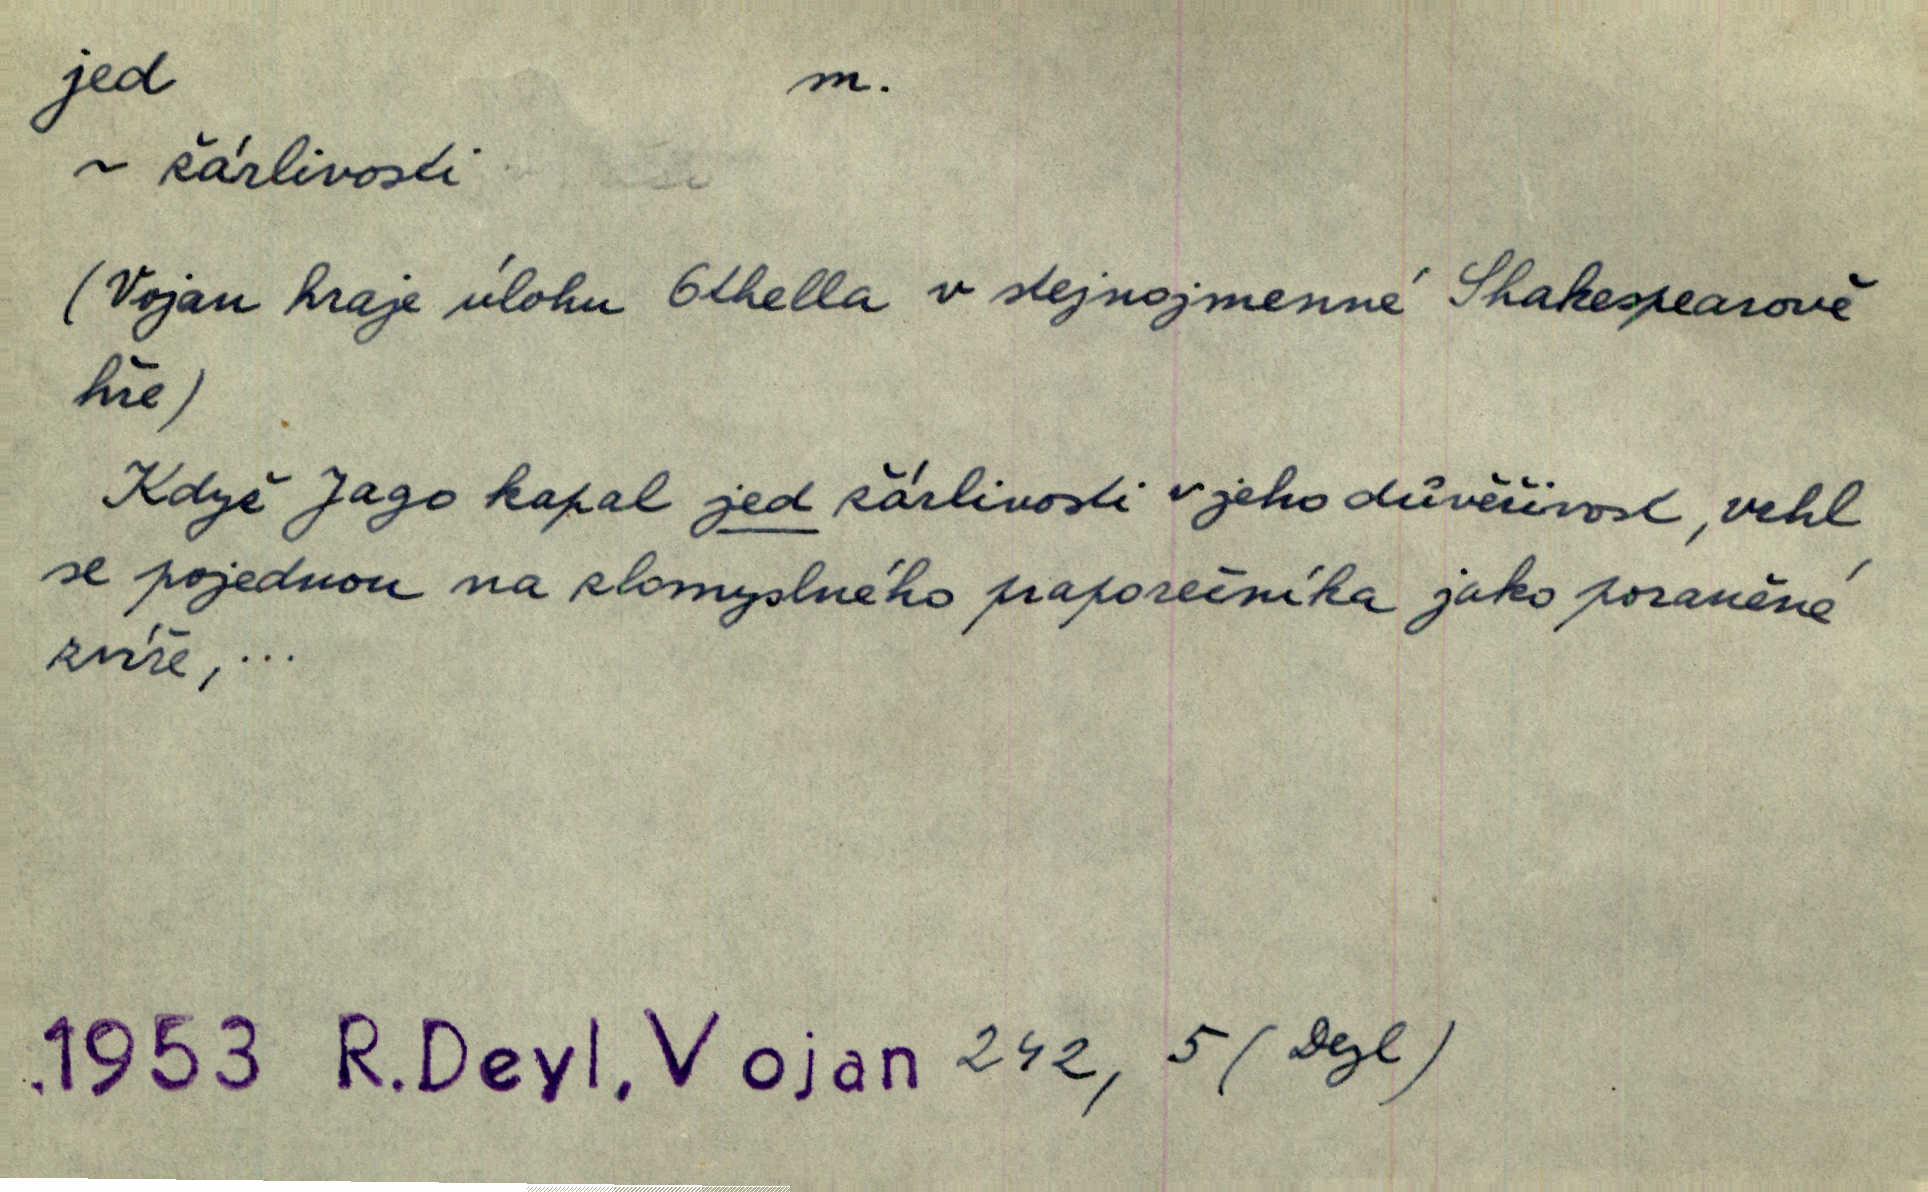 jed m.
~ žárlivosti
(Vojan hraje úlohu Othella v stejnojmenné Shakespearově
hře)
Když Jago kapal jed žárlivosti v jeho důvěřivost, vrhl
se pojednou na zlomyslného praporečníka jako poraněné
zvíře,...
.1953 R.Deyl, Vojan 242, 5 (Deyl)